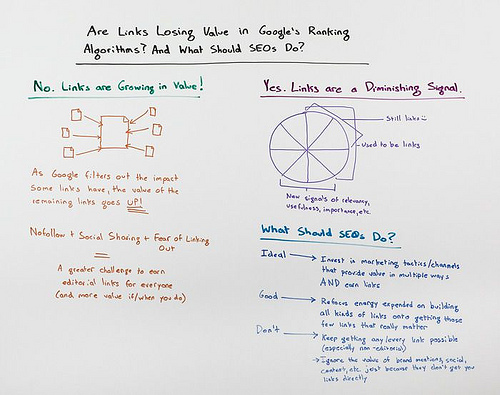 Are Links Losing Value in Google's Ranking
Algorithms? And What Should SEOs Do?
No. Links are Growing in Value!
As Google filters out the impact
some links have, the value of the
remaining links goes UP!
Nofollow + Social Sharing + Fear of Linking
Out
=
A greater challenge to earn
editorial links for everyone
(and more value if/when you do)
Yes. Links are a Diminishing Signal.
Still links :)
Used to be links
New signals of relevancy,
usefulness, importance, etc.
What Should SEOs Do?
Ideal → Invest in marketing tactics/channels
that provide value in multiple ways
AND earn links
Good → Refocus energy expended on building
all kinds of links onto getting those
few links that really matter
Don't → Keep getting any/every link possible
(especially non-editorial)
→ Ignore the value of brand mentions, social,
content, etc. just because they don't get you
links directly